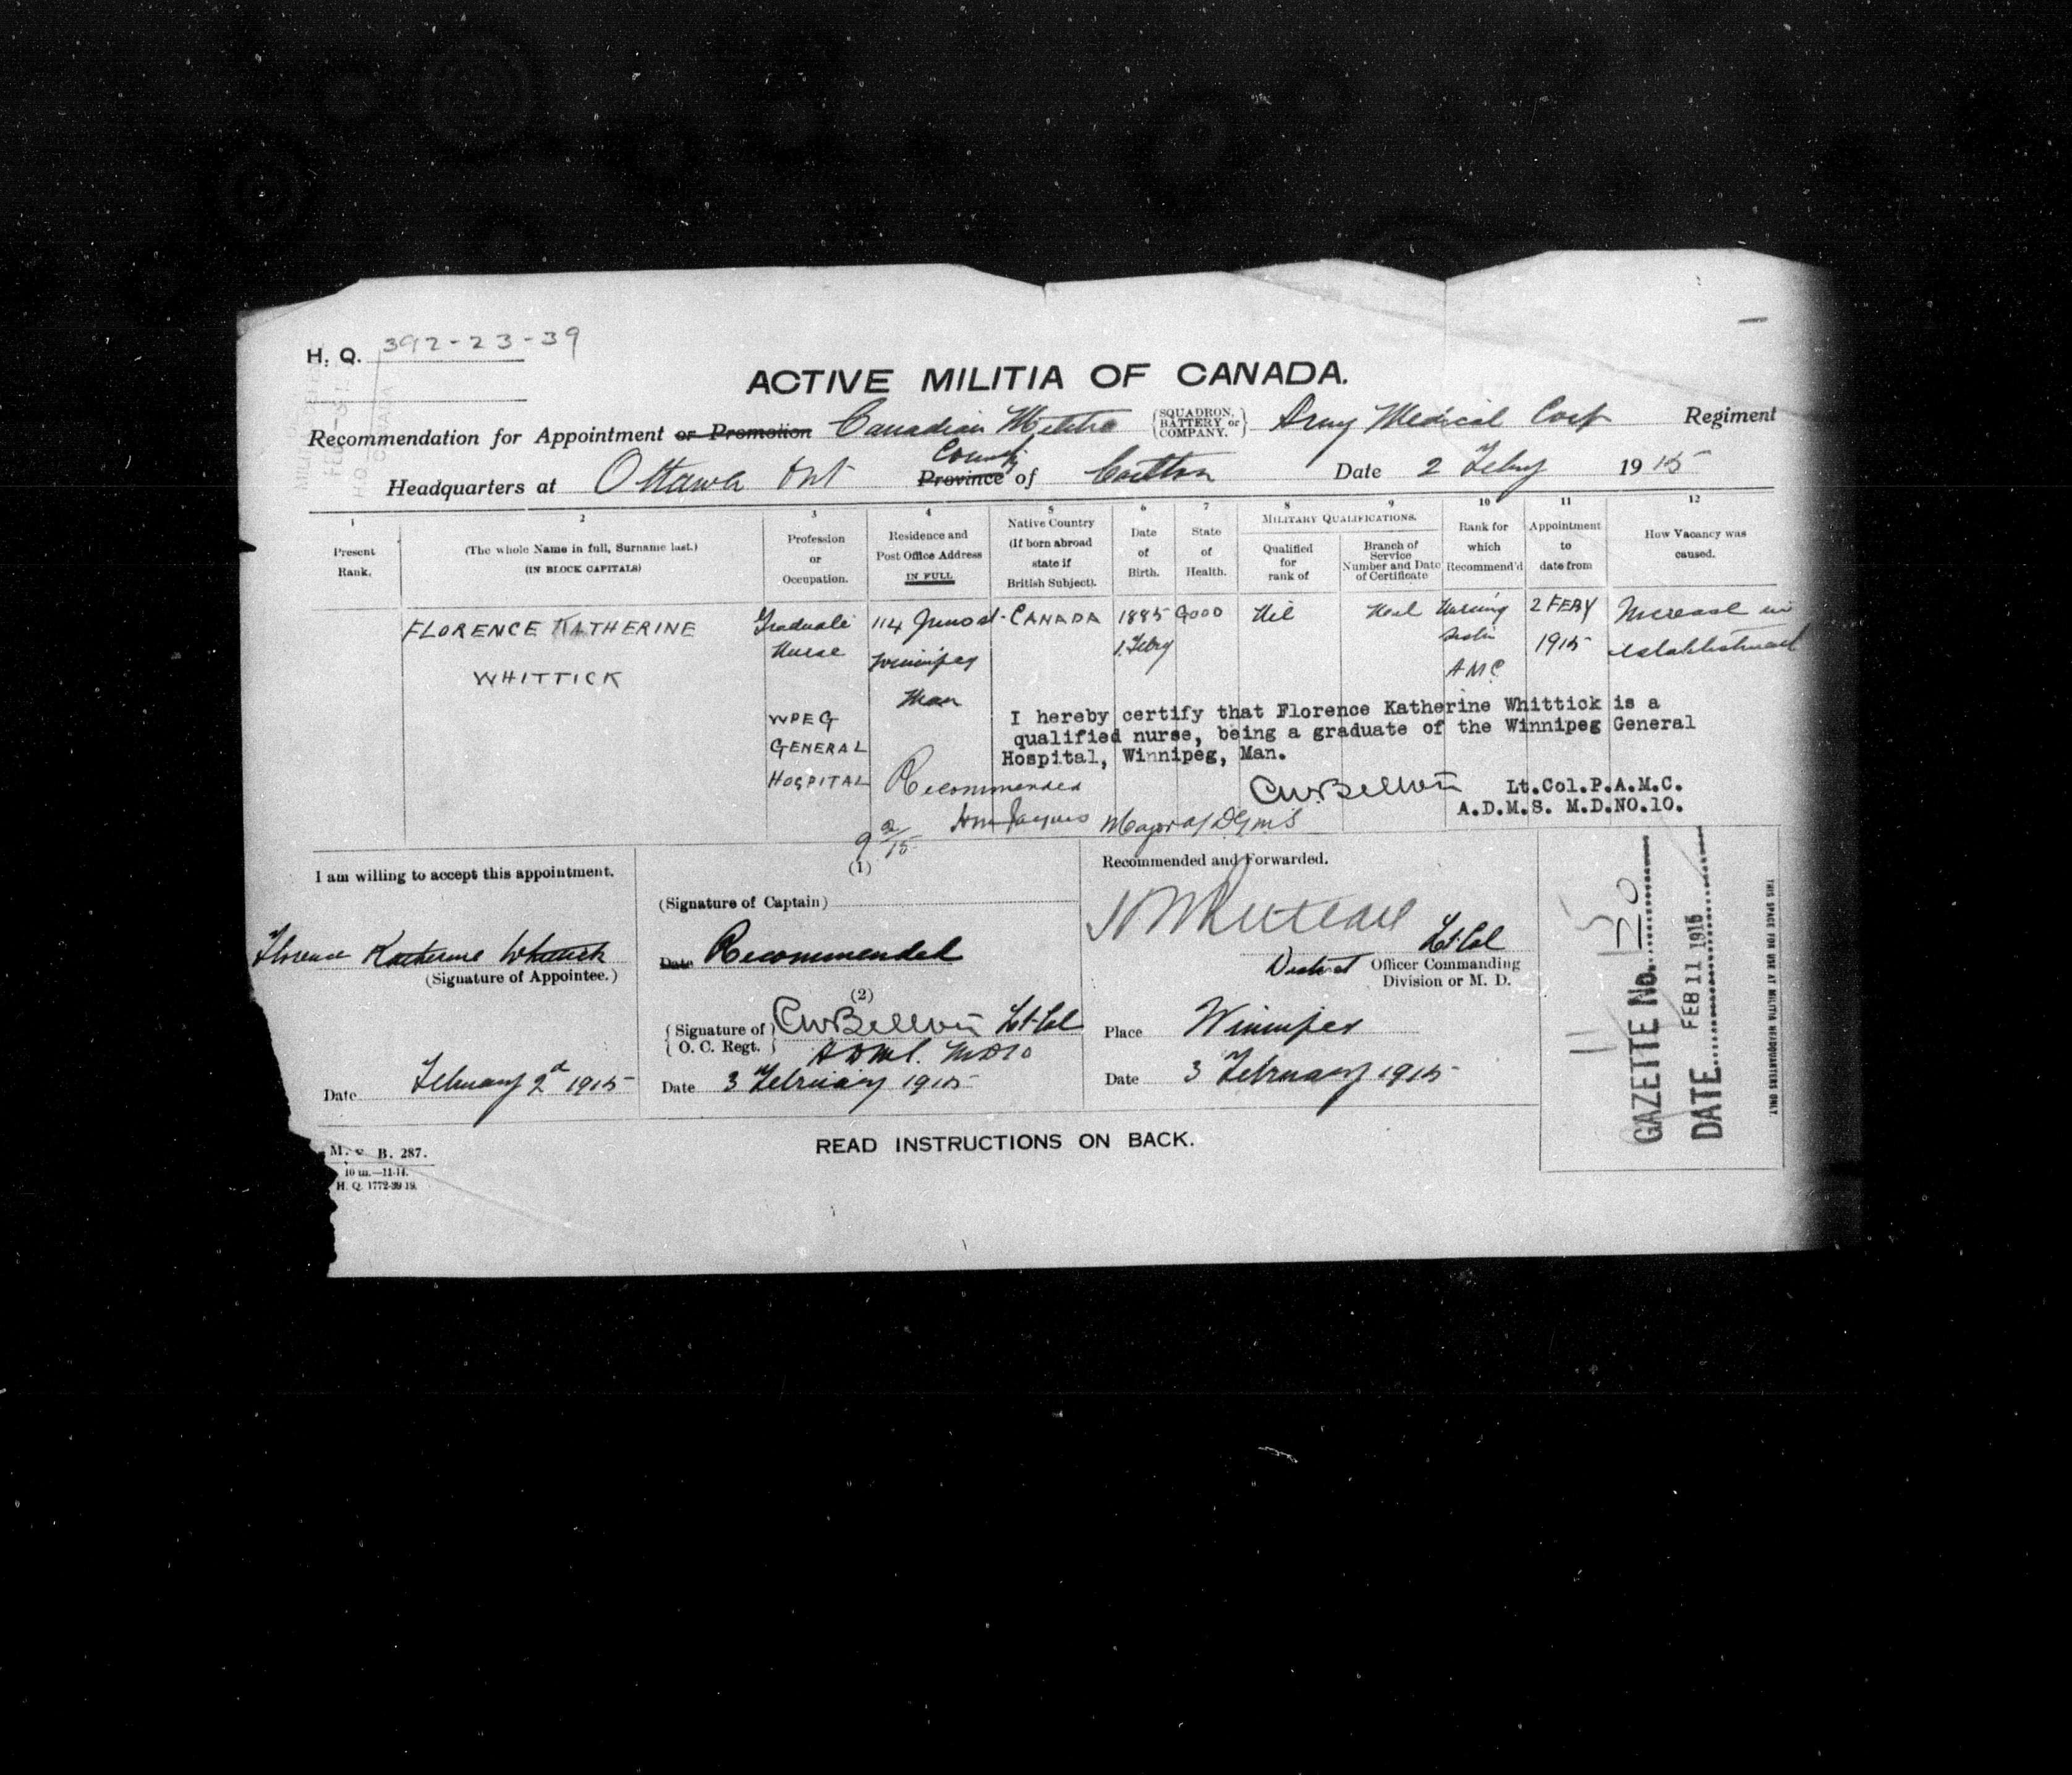 H. Q. 392-23-39
ACTIVE MILITIA OF CANADA.
Recommendation for Appointment or Promotion Canadian Militia { SQUADRON, BATTERY or COMPANY. } Army Medical Corp Regiment
County
Headquarters at Ottawa Ont Province of Carlton Date 2 Feby 1915
1 2 3 4 5 6 7 8 9 10 11 12
Present Rank.
(The whole Name in full, Surname last.)
(IN BLOCK CAPITALS)
Profession or Occupation.
Residence and Post Office Address IN FULL
Native Country (If born abroad state if British Subject).
Date of Birth.
State of Health.
MILITARY QUALIFICATIONS.
Qualified for rank of
Branch of Service Number and Date of Certificate
Rank for which Recommend'd
Appointment to date from
How Vacancy was caused.
FLORENCE KATHERINE
WHITTICK
Graduate
Nurse
WPEG
GENERAL
HOSPITAL
114 Juno st.
Winnipeg
Man
CANADA
1885
1 Febry
GOOD
Nil
Nursing
A M C
2 FEBY
1915
Increase in
establishment
I hereby certify that Florence Katherine Whittick is a
qualified nurse, being a graduate of the Winnipeg General
Hospital, Winnipeg, Man.
Lt.Col.P.A.M.C.
A.D.M.S. M.D.NO.10.
Recommended
Jacques Major a/ D.G.M.S
9 2/15
I am willing to accept this appointment.
Florence Katherine Whittick
(Signature of Appointee.)
Date February 2d 1915
(1)
(Signature of Captain)
Date Recommended
(2)
{ Signature of O. C. Regt. } Lt-Col
ADMS. MD10
Date 3 February 1915
Recommended and Forwarded.
Lt-Col
District Officer Commanding
Division or M. D.
Place Winnipeg
Date 3 February 1915
GAZETTE No.
DATE FEB 11 1915
THIS SPACE FOR USE AT MILITIA HEADQUARTERS ONLY
B. 287.
10 m.—11-14.
H. Q. 1772-39-19.
READ INSTRUCTIONS ON BACK.